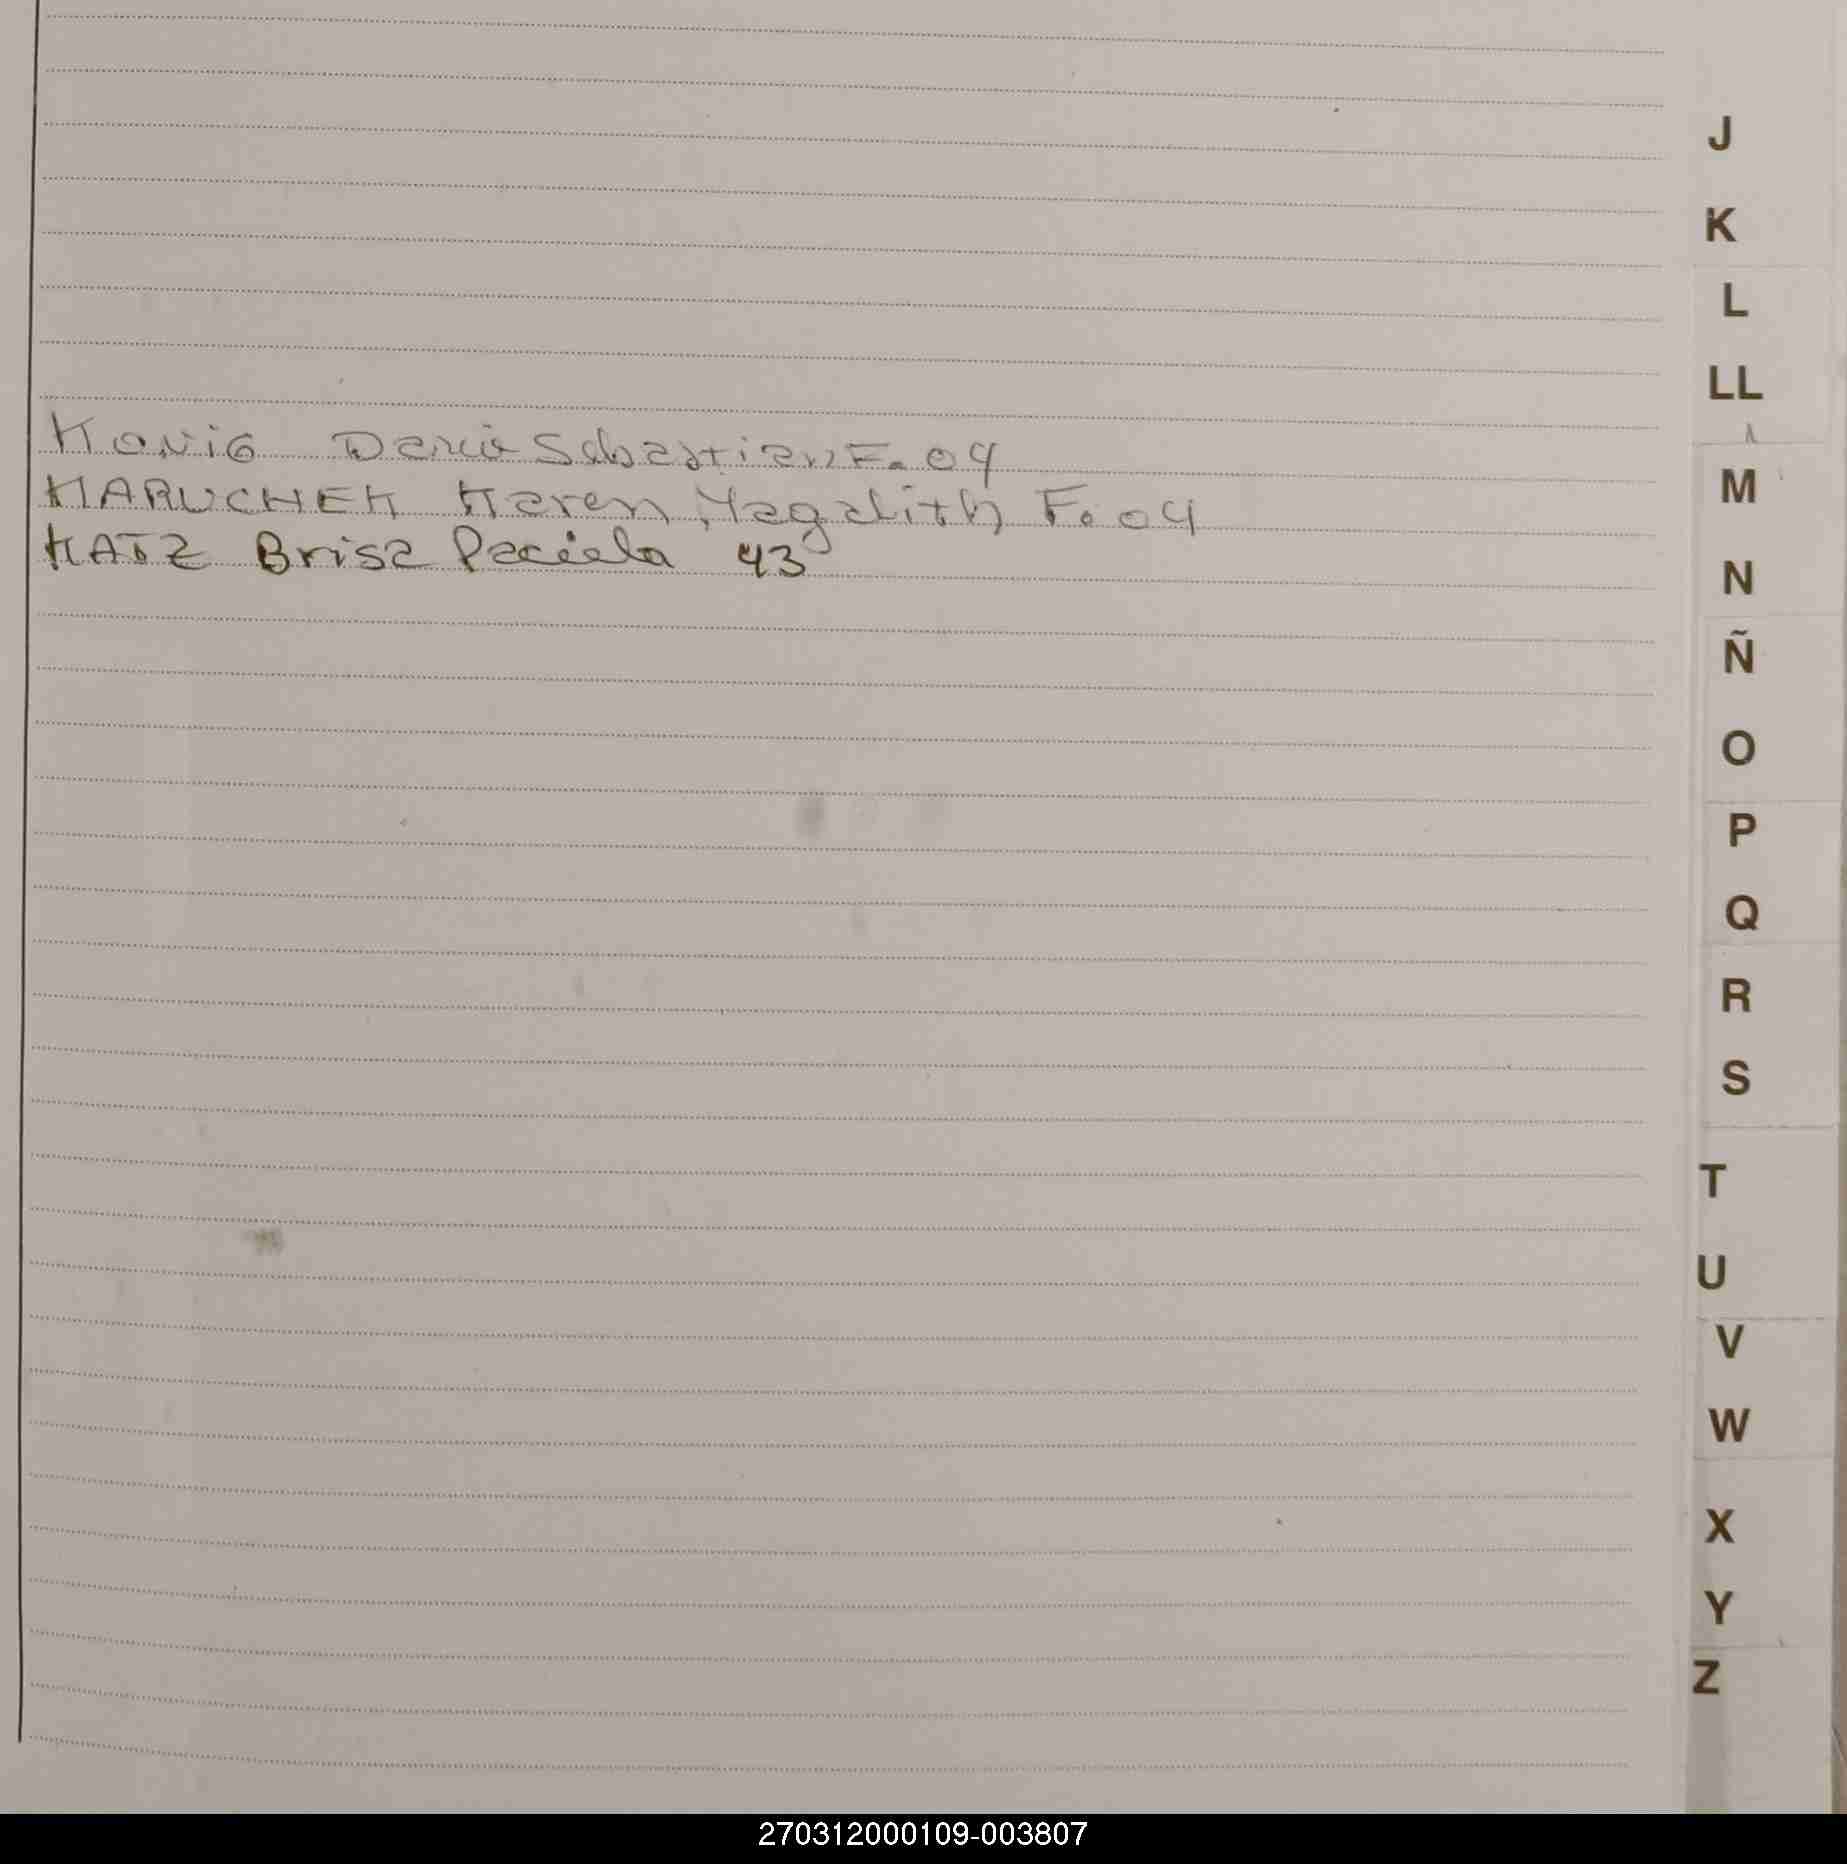 KONiG Dario Sebastian F. 04
KARUCHEK Karen Magalith F. 04
KATZ Brisa Paciela 43
J
K
L
LL
M
N
Ñ
O
P
Q
R
S
T
U
V
W
X
Y
Z
270312000109-003807